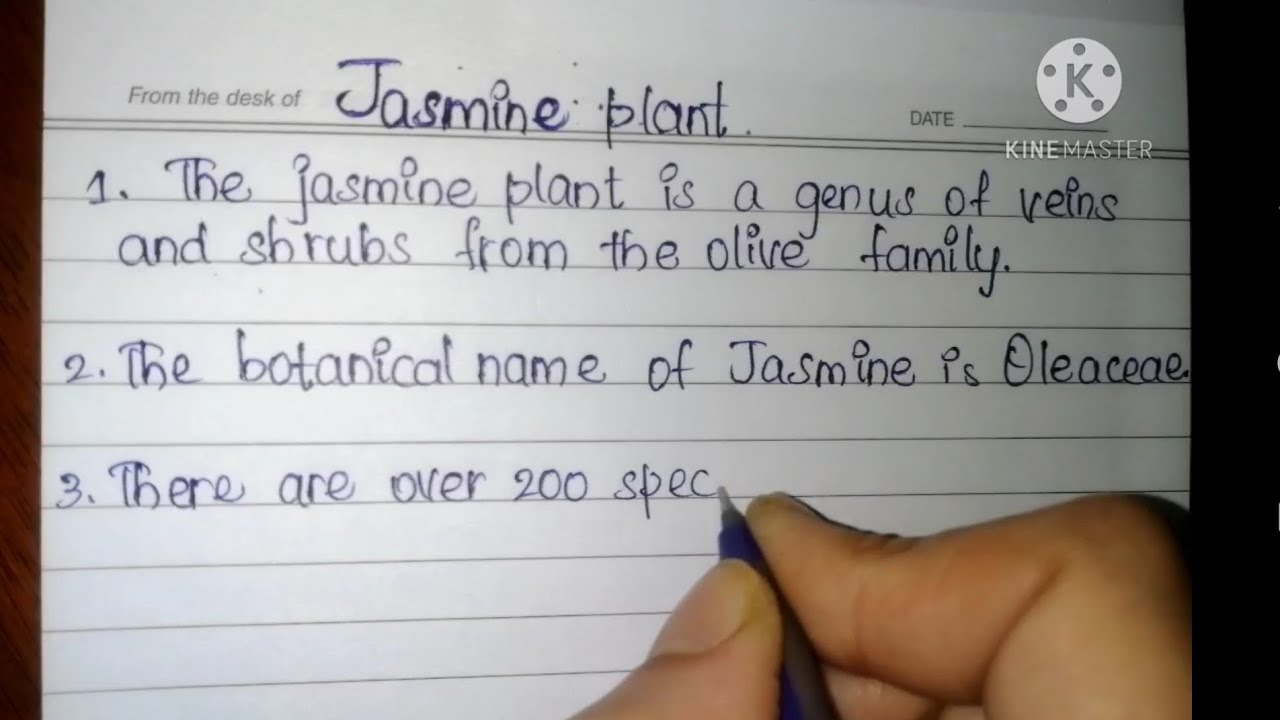 From the desk of Jasmine plant.
DATE
KINEMASTER
1. The jasmine plant is a genus of veins
and shrubs from the olive family.
2. The botanical name of Jasmine is Oleaceae.
3. There are over 200 spec